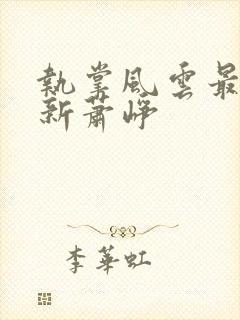 執掌風雲最
新蕭崢
李華虹